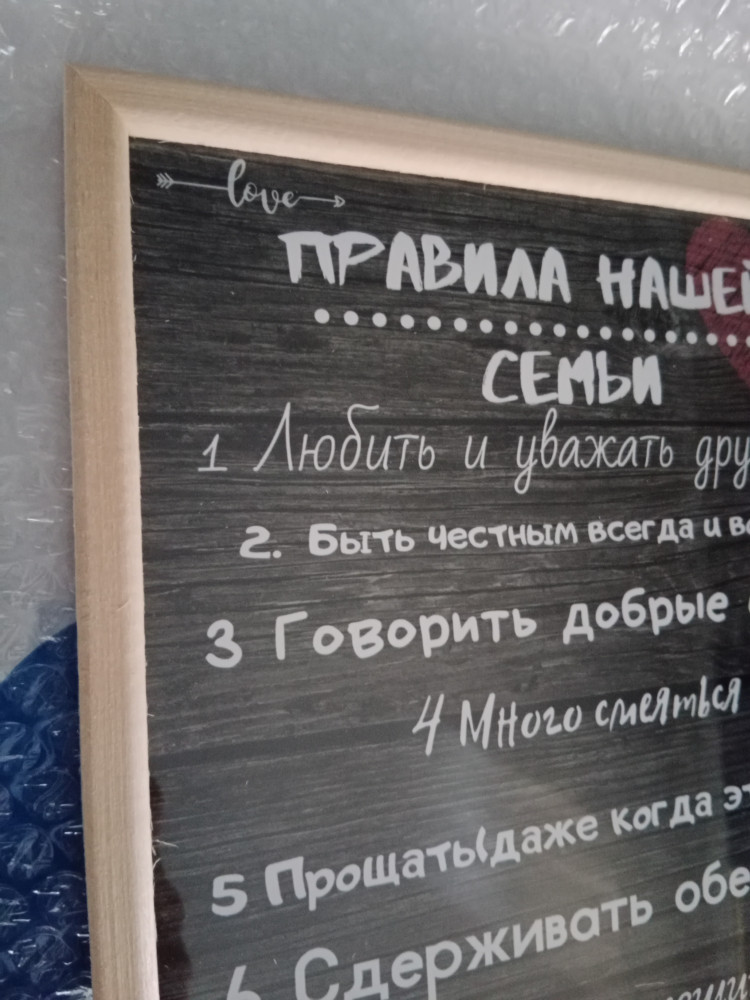 love
ПРАВИЛА НАШЕЙ
СЕМЬИ
1 Любить и уважать дру
2. Быть честным всегда и во
3 Говорить добрые
4 Много смеяться
5 Прощать(даже когда эт
6 Сдерживать обе